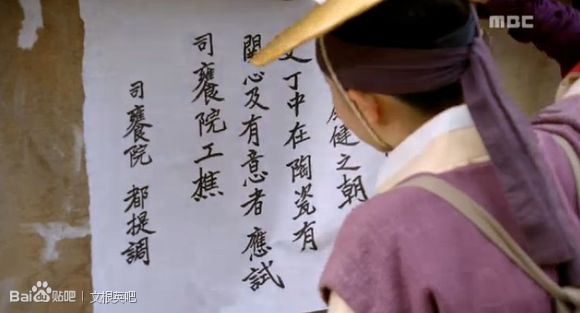 健之朝
丁中在陶瓷有
関心及有意者 應試
司饔院工樵
司饔院 都提調
MBC
Bai du 贴吧 | 文根英吧